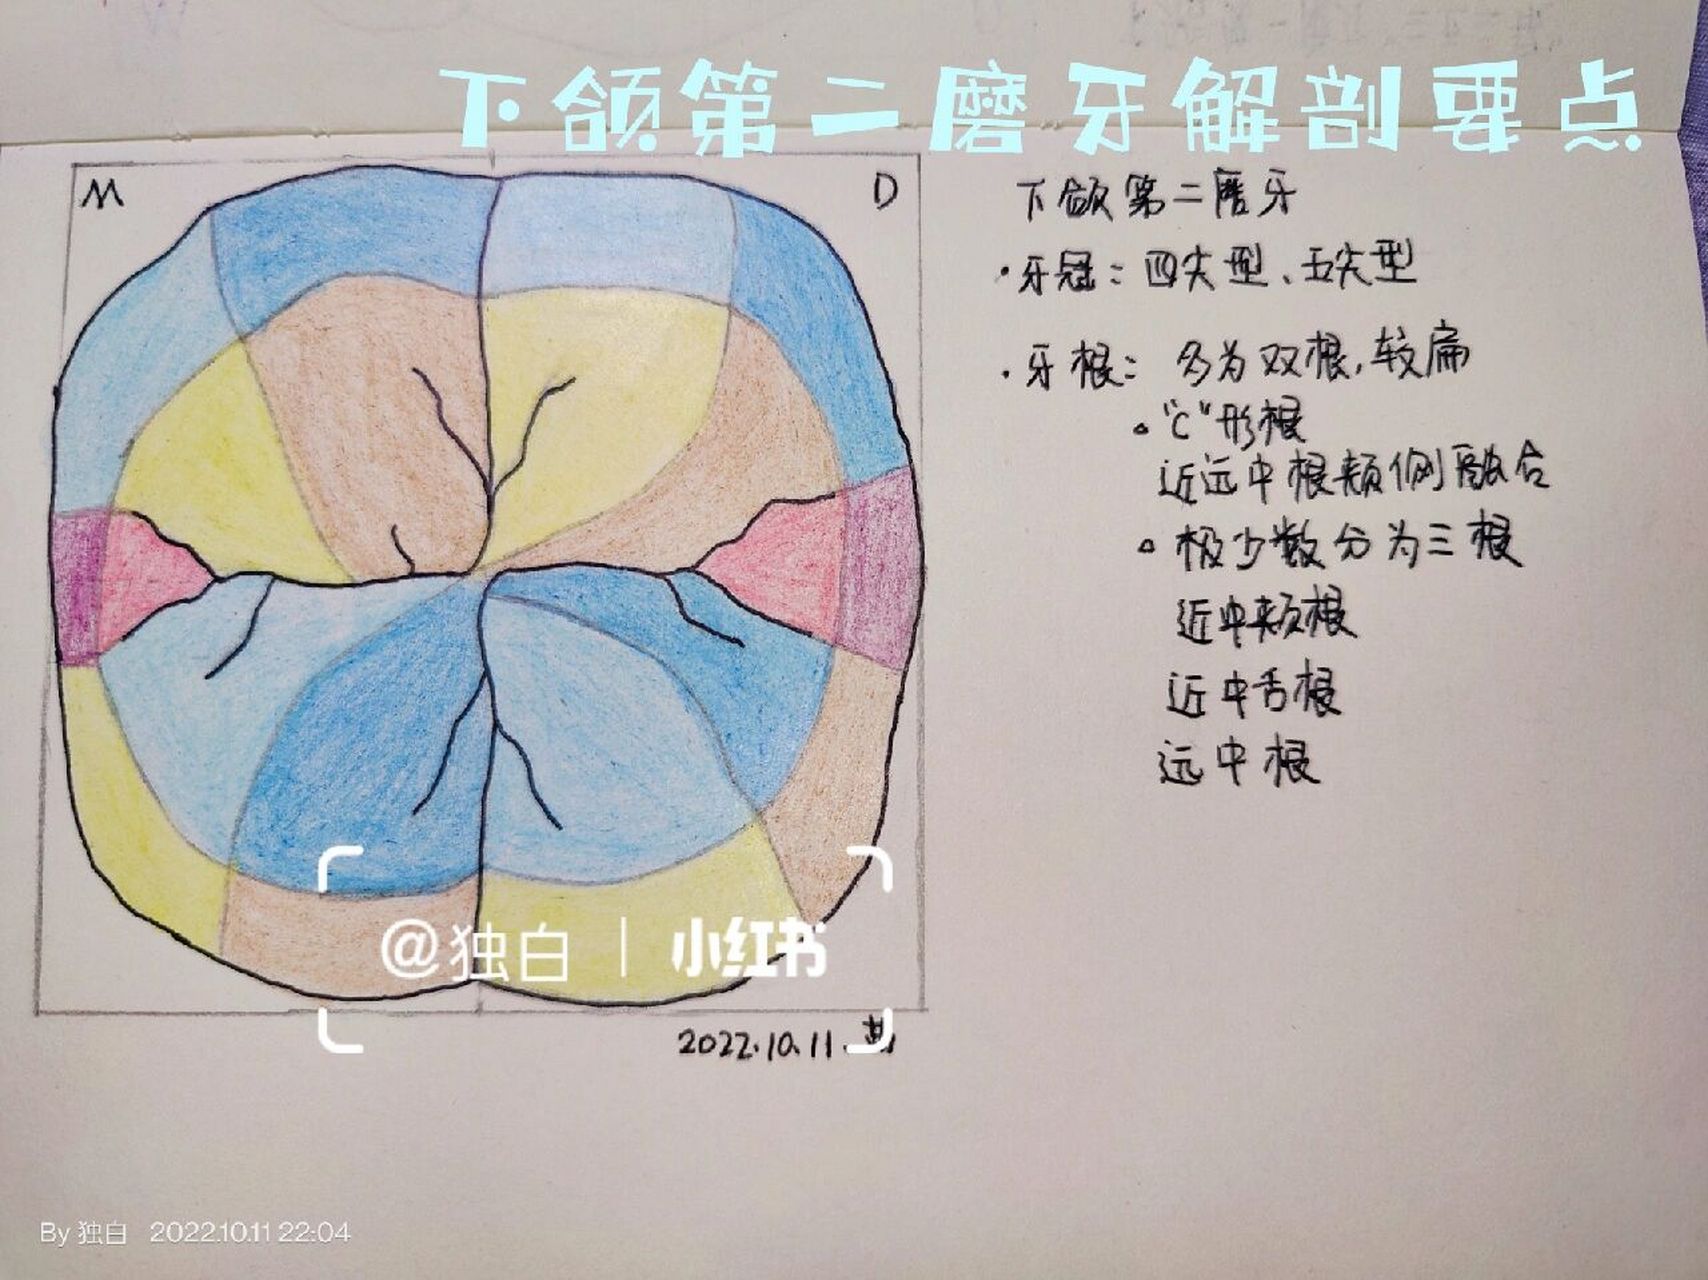 下颌第二磨牙解剖要点
M
D
下颌第二磨牙
·牙冠：四尖型、五尖型
·牙根：多为双根，较扁
。"C"形根
近远中根颊侧融合
。极少数分为三根
近中颊根
近中舌根
远中根
@独白 | 小红书
2022.10.11.
By 独白 2022.10.11 22:04